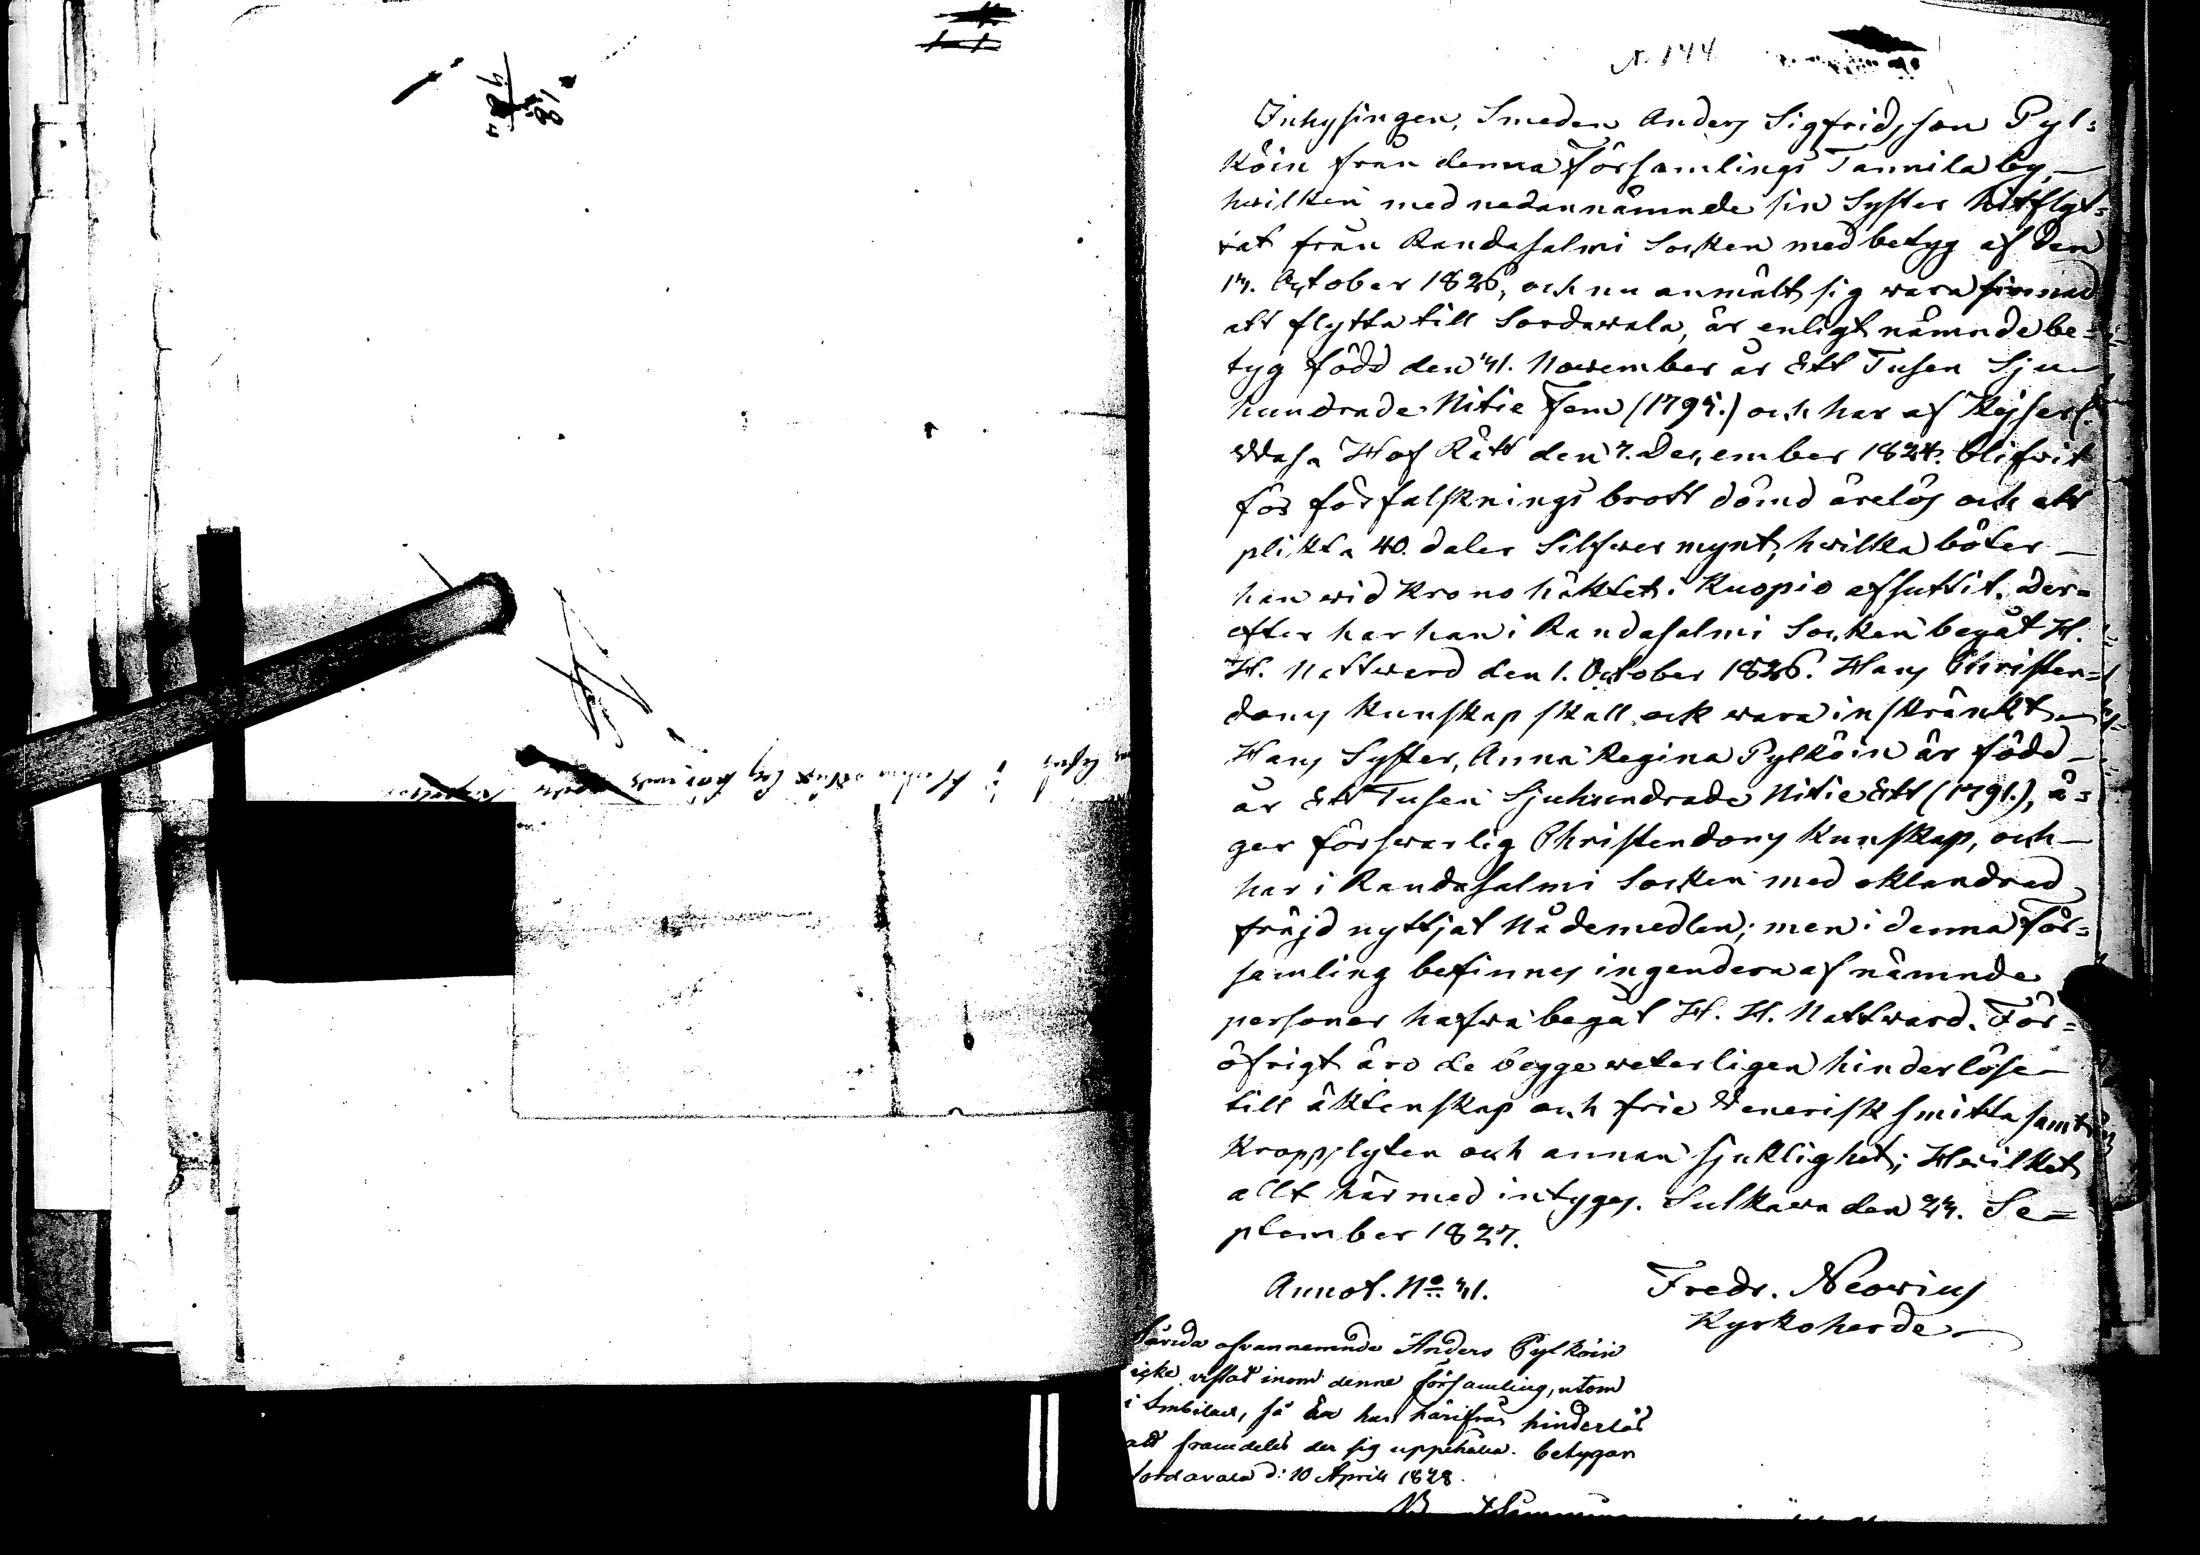 N. 144
Inhysingen, Smeden Anders Sigfridsson Pyl=
köin från denna Församlings Tannila by,
hwilken med nedannämnde sin Syster hitflyt=
tat från Randasalmi Socken med betyg af den
17. October 1826, och nu anmält sig wara sinnad
att flytta till Sordawala, är enligt nämnde be=
tyg född den 21. November år Ett Tusen Sju
hundrade Nitie Fem (1795.) och har af Kejserl.
Wasa Hof Rätt den 7. December 1824. blifwit
för förfalsknings brott dömd ärelös och att
plikta 40. daler Silfwer mynt, hwilka böter
han wid Krono häktet i Kuopio afsuttit. Der=
efter har han i Randasalmi Socken begåt H.
H. Nattward den 1. October 1826. Hans Christen=
doms Kunskap skall ock wara inskränkt
Hans Syster, Anna Regina Pylköin är född
år Ett Tusen Sjuhundrade Nitie Ett (1791.), ä=
ger förswarlig Christendoms Kunskap, och
har i Randasalmi Socken med oklandrad
fräjd nyttjat Nådemedlen; men i denna För=
samling befinnes ingendera af nämnde
personer hafwa begåt H. H. Nattward. För=
öfrigt äro de begge weterligen hinderlöse
till äktenskap och frie Venerisk smitta samt
Kroppslyten och annan sjuklighet; Hwilket
allt härmed intyges. Sulkawa den 27. Se=
ptember 1827.
Annot. No 21. Fredr. Neovius
Kyrkoherde
Särda ofvannemnde Anders Pylköin
icke vistat inom denne församling, utom
i Imbilax, så är han härifrån hinderlös
att framdeles der sig uppehålla. betygar
Sordavala d: 10 April 1828.